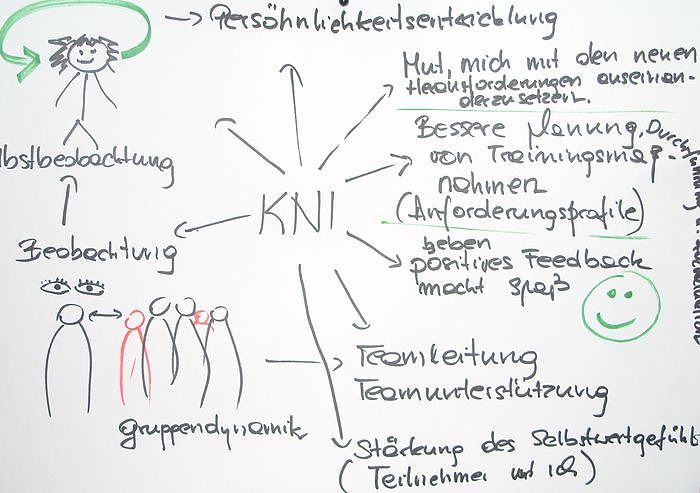 Persöhnlichkeitsentwicklung
Mut, mich mit den neuen
Herausforderungen auseinan-
derzusetzen.
Bessere Planung, Durchführung
von Trainingsmaß-
nahmen
(Anforderungsprofile)
KNI
lbstbeobachtung
Beobachtung
geben
positives Feedback
macht Spaß
Teamleitung
Teamunterstützung
gruppendynamik
Stärkung des Selbstwertgefühls
(Teilnehmer und ich)